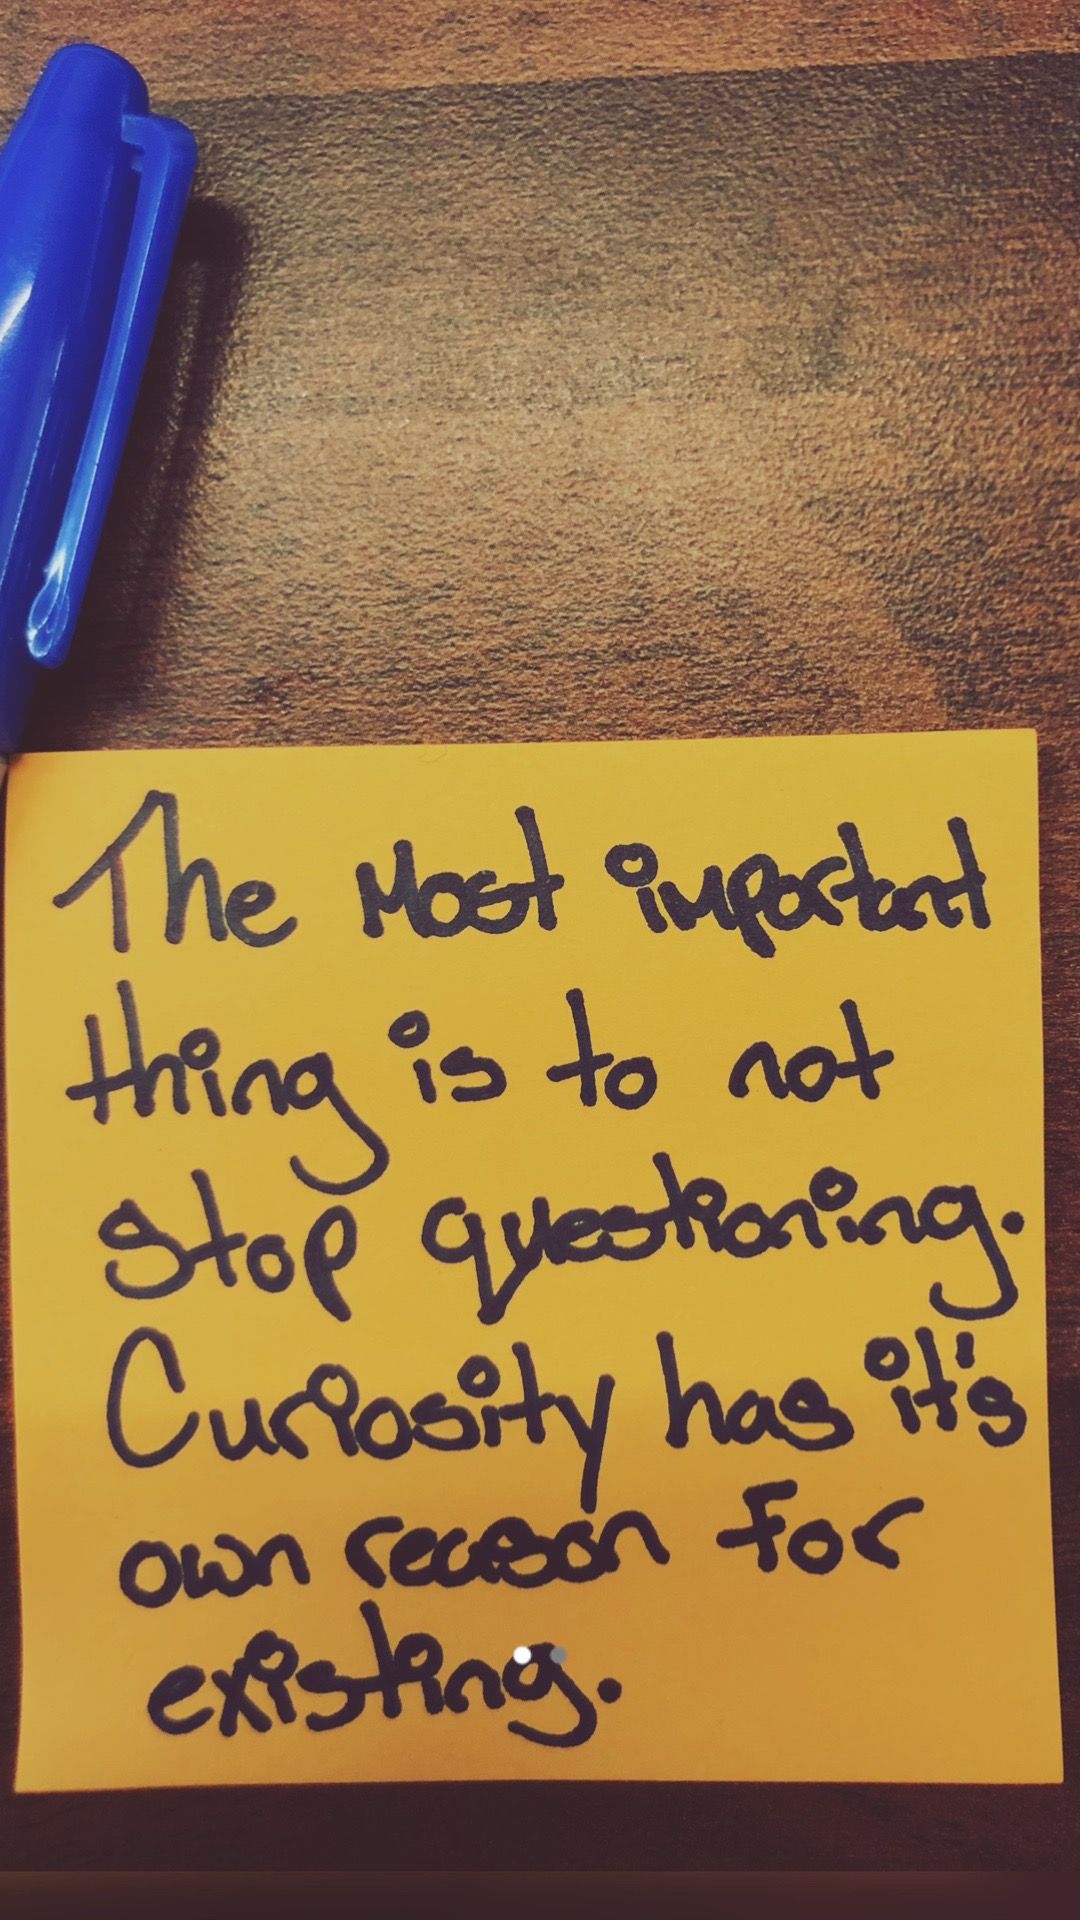 The Most important
thing is to not
stop questioning.
Curiosity has it's
own reason for
existing.